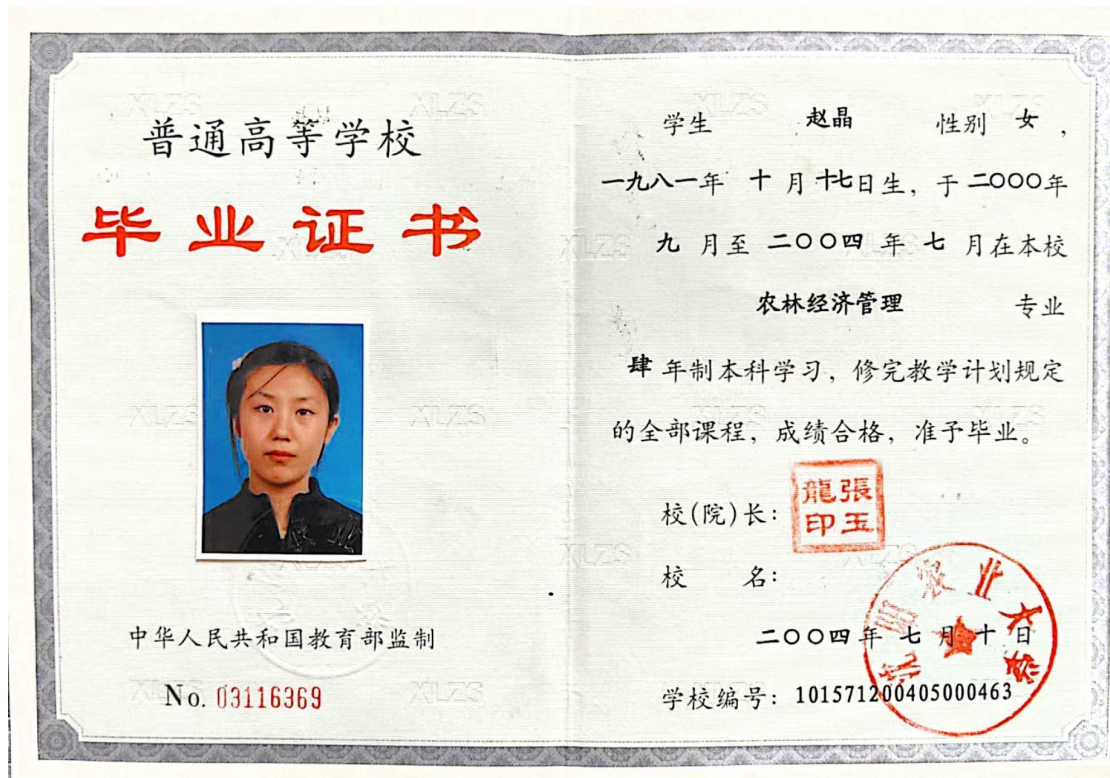 普通高等学校
毕业证书
中华人民共和国教育部监制
No. 03116369
学生 赵晶 性别 女，
一九八一年 十 月 十七日生，于 二〇〇〇年
九 月至 二〇〇四 年 七 月在本校
农林经济管理 专业
肆 年制本科学习，修完教学计划规定
的全部课程，成绩合格，准予毕业。
校(院)长：
張玉龍印
校 名：
沈阳农业大学
二〇〇四年 七 月 十 日
学校编号：101571200405000463
XLZS